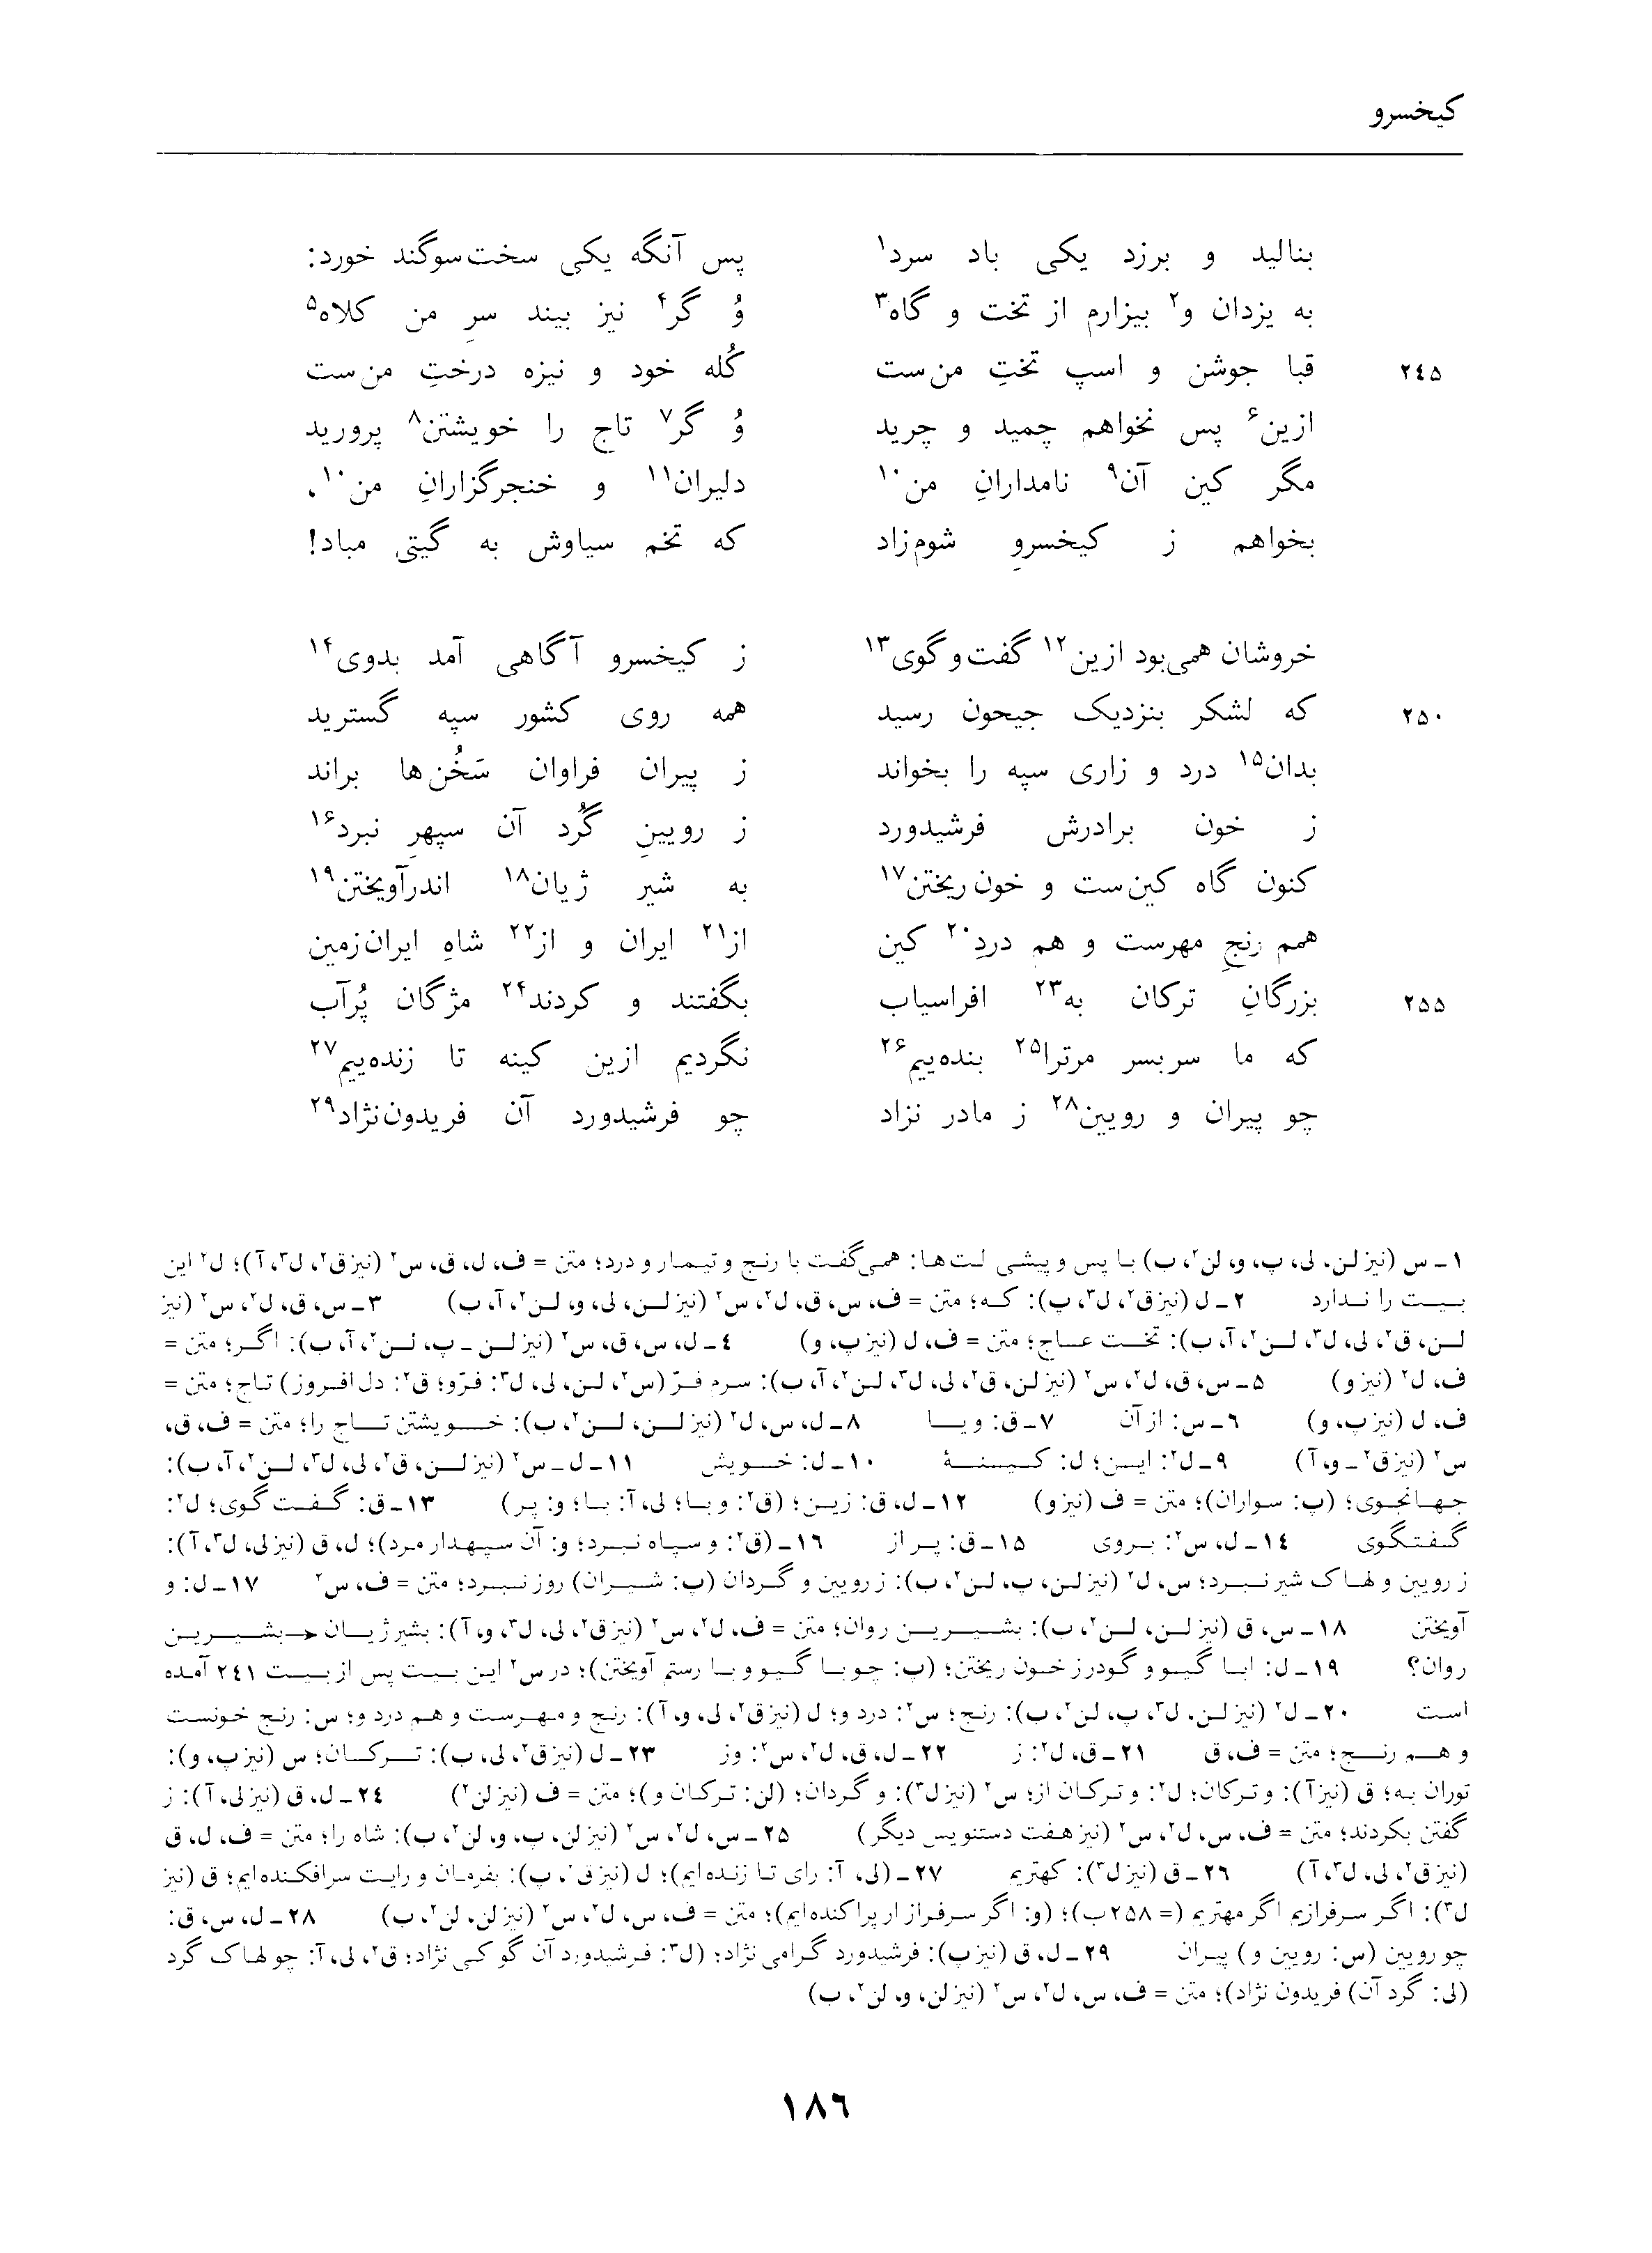 کیخسرو
بنالید و برزد یکی باد سرد۱ پس آنگه یکی سخت‌سوگند خورد:
به یزدان و۲ بیزارم از تخت و گاه۳ وُ گر۴ نیز بیند سرِ من کلاه۵
۲۴۵ قبا جوشن و اسپ تختِ من‌ست کُله خود و نیزه درختِ من‌ست
ازین۶ پس نخواهم چمید و چرید وُ گر۷ تاج را خویشتن۸ پرورید
مگر کین آن۹ نامدارانِ من۱۰ دلیران۱۱ و خنجرگزارانِ من۱۰،
بخواهم ز کیخسروِ شوم‌زاد که تخم سیاوش به گیتی مباد!
خروشان همی‌بود ازین۱۲ گفت‌و گوی۱۳ ز کیخسرو آگاهی آمد بدوی۱۴
۲۵۰ که لشکر بنزدیک جیحون رسید همه روی کشور سپه گسترید
بدان۱۵ درد و زاری سپه را بخواند ز پیران فراوان سَخُن‌ها براند
ز خون برادرش فرشیدورد ز رویینِ گُرد آن سپهرِ نبرد۱۶
کنون گاه کین‌ست و خون‌ریختن۱۷ به شیر ژیان۱۸ اندرآویختن۱۹
همم رنجِ مهرست و هم دردِ۲۰ کین از۲۱ ایران و از۲۲ شاهِ ایران‌زمین
۲۵۵ بزرگانِ ترکان به۲۳ افراسیاب بگفتند و کردند۲۴ مژگان پُرآب
که ما سربسر مرترا۲۵ بنده‌ییم۲۶ نگردیم ازین کینه تا زنده‌ییم۲۷
چو پیران و رویین۲۸ ز مادر نزاد چو فرشیدورد آن فریدون‌نژاد۲۹
۱ـ س (نیز لن، لی، پ، و، لن۲، ب) با پس و پیشی لت‌ها: همی‌گفت با رنج و تیمار و درد؛ متن = ف، ل، ق، س۲ (نیز ق۲، ل۳، آ)؛ ل۲ این
بیت را ندارد ۲ـ ل (نیز ق۲، ل۳، پ): که؛ متن = ف، س، ق، ل۲، س۲ (نیز لن، لی، و، لن۲، آ، ب) ۳ـ س، ق، ل۲، س۲ (نیز
لن، ق۲، لی، ل۳، لن۲، آ، ب): تخت عاج؛ متن = ف، ل (نیز پ، و) ۴ـ ل، س، ق، س۲ (نیز لن ـ پ، لن۲، آ، ب): اگر؛ متن =
ف، ل۲ (نیز و) ۵ـ س، ق، ل۲، س۲ (نیز لن، ق۲، لی، ل۳، لن۲، آ، ب): سرم فرّ (س۲، لن، لی، ل۳: فرّو؛ ق۲: دل افروز) تاج؛ متن =
ف، ل (نیز پ، و) ۶ـ س: از آن ۷ـ ق: و یا ۸ـ ل، س، ل۲ (نیز لن، لن۲، ب): خویشتن تاج را؛ متن = ف، ق،
س۲ (نیز ق۲ ـ و، آ) ۹ـ ل۲: این؛ ل: کینهٔ ۱۰ـ ل: خویش ۱۱ـ ل ـ س۲ (نیز لن، ق۲، لی، ل۳، لن۲، آ، ب):
جهانجوی؛ (پ: سواران)؛ متن = ف (نیز و) ۱۲ـ ل، ق: زین؛ (ق۲: و با؛ لی، آ: با؛ و: پر) ۱۳ـ ق: گفت گوی؛ ل۲:
گفتگوی ۱۴ـ ل، س۲: بروی ۱۵ـ ق: پر از ۱۶ـ (ق۲: و سپاه نبرد؛ و: آن سپهدار مرد)؛ ل، ق (نیز لی، ل۳، آ):
ز رویین و لهاک شیر نبرد؛ س، ل۲ (نیز لن، پ، لن۲، ب): ز رویین و گردان (پ: شیران) روز نبرد؛ متن = ف، س۲ ۱۷ـ ل: و
آویختن ۱۸ـ س، ق (نیز لن، لن۲، ب): بشیرین روان؛ متن = ف، ل۲، س۲ (نیز ق۲، لی، ل۳، و، آ): بشیر ژیان ←بشیرین
روان؟ ۱۹ـ ل: ابا گیو و گودرز خون ریختن؛ (پ: چو با گیو و با رستم آویختن)؛ در س۲ این بیت پس از بیت ۲۴۱ آمده
است ۲۰ـ ل۲ (نیز لن، ل۳، پ، لن۲، ب): رنج؛ س۲: درد و؛ ل (نیز ق۲، لی، و، آ): رنج و مهرست و هم درد و؛ س: رنج خونست
و هم رنج؛ متن = ف، ق ۲۱ـ ق، ل۲: ز ۲۲ـ ل، ق، ل۲، س۲: وز ۲۳ـ ل (نیز ق۲، لی، ب): ترکان؛ س (نیز پ، و):
توران به؛ ق (نیز آ): و ترکان؛ ل۲: و ترکان از؛ س۲ (نیز ل۳): و گردان؛ (لن: ترکان و)؛ متن = ف (نیز لن۲) ۲۴ـ ل، ق (نیز لی، آ): ز
گفتن بکردند؛ متن = ف، س، ل۲، س۲ (نیز هفت دستنویس دیگر) ۲۵ـ س، ل۲، س۲ (نیز لن، پ، و، لن۲، ب): شاه را؛ متن = ف، ل، ق
(نیز ق۲، لی، ل۳، آ) ۲۶ـ ق (نیز ل۳): کهتریم ۲۷ـ (لی، آ: رای تا زنده‌ایم)؛ ل (نیز ق۲، پ): بفرمان و رایت سرافکنده‌ایم؛ ق (نیز
ل۳): اگر سرفرازیم اگر مهتریم (= ۲۵۸ب)؛ (و: اگر سرفراز ار پراکنده‌ایم)؛ متن = ف، س، ل۲، س۲ (نیز لن، لن۲، ب) ۲۸ـ ل، س، ق:
چو رویین (س: رویین و) پیران ۲۹ـ ل، ق (نیز پ): فرشیدورد گرامی نژاد؛ (ل۳: فرشیدورد آن گو کی نژاد؛ ق۲، لی، آ: چو لهاک گرد
(لی: گرد آن) فریدون نژاد)؛ متن = ف، س، ل۲، س۲ (نیز لن، و، لن۲، ب)
۱۸۶